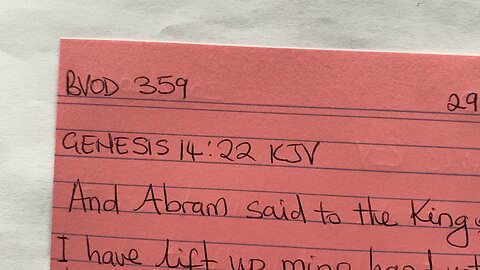 BVOD 359
29
GENESIS 14:22 KJV
And Abram said to the King
I have lift up mine hand